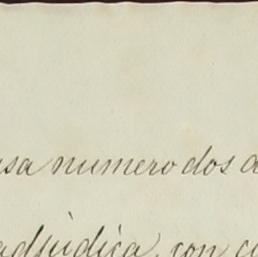 usa numero dos d
adjudica, con cu